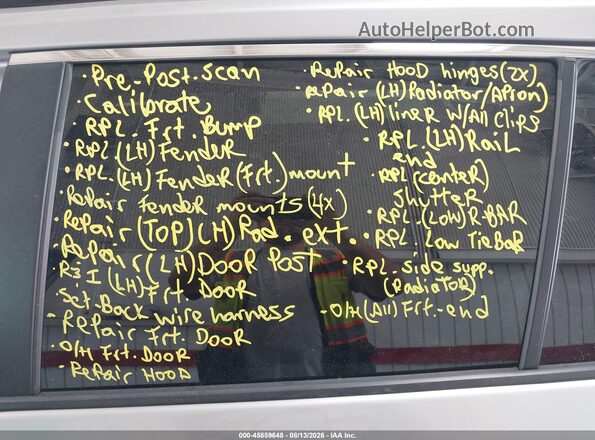 AutoHelperBot.com
· Pre-Post-Scan
· Calibrate
RPL. Frt. Bump
· RPL (LH) FendeR
· RPL. (LH) FendeR (Frt.) mount
Repair FendeR mounts (4x)
· Repair (TOP) LH) Rad. ext.
· Repair (LH) DOOR Post
· R3I (LH) Frt. DOOR
Set-Back wire harness
- Repair Frt. DOOR
· O/H Frt. DOOR
· Repair HOOD
· Repair HOOD hinges (2x)
· Repair (LH) Radiator/APron)
· RPL. (LH) lineR W/All Clips
· RPL. (LH) RaiL
end
· RPL (CenteR)
ShutteR
· RPL. (LOW) R-BAR
· RPL. Low TieBaR
· RPL. side supp.
(RadiatoR)
- O/H (All) Frt.-end
000-45859648 - 08/13/2026 - IAA Inc.